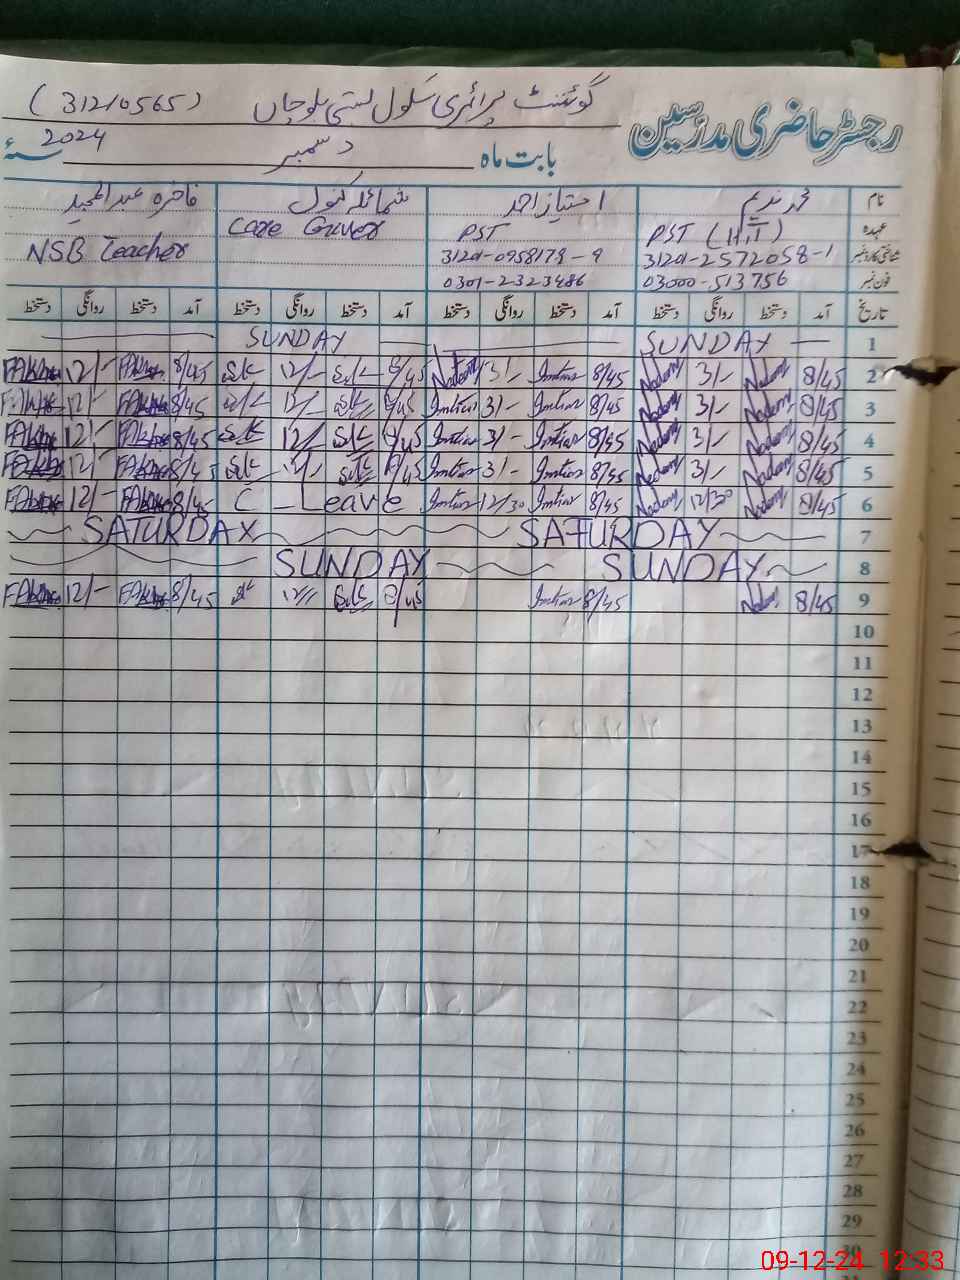 رجسٹر حاضری مدرسین
گورنمنٹ پرائمری سکول بستی بلوچاں (31210565)
بابت ماہ دسمبر سنہ 2024
نام محمد ندیم امتیاز احمد شمائلہ کنول فاخرہ عبدالمجید
عہدہ PST (H.T) PST Care Giver NSB Teacher
شناختی کارڈ نمبر 31201-2572058-1 31201-0958178-9
فون نمبر 03000-513756 0301-2323486
تاریخ آمد دستخط روانگی دستخط آمد دستخط روانگی دستخط آمد دستخط روانگی دستخط آمد دستخط روانگی دستخط
1 SUNDAY SUNDAY
2 8/45 Nadeem 3/- Nadeem 8/45 Imtiaz 3/- Nadeem 8/45 12/- 8/45 12/-
3 8/45 Nadeem 3/- Nadeem 8/45 Imtiaz 3/- Imtiaz 8/45 12/- 8/45 12/-
4 8/45 Nadeem 3/- Nadeem 8/45 Imtiaz 3/- Imtiaz 8/45 12/- 8/45 12/-
5 8/45 Nadeem 3/- Nadeem 8/45 Imtiaz 3/- Imtiaz 8/45 12/- 8/45 12/-
6 8/45 Nadeem 12/30 Nadeem 8/45 Imtiaz 12/30 Imtiaz C - Leave 8/45 12/-
7 SATURDAY SATURDAY
8 SUNDAY SUNDAY
9 8/45 Nadeem 8/45 Imtiaz 8/45 12/- 8/45 12/-
10
11
12
13
14
15
16
17
18
19
20
21
22
23
24
25
26
27
28
29
30
09-12-24 12:33